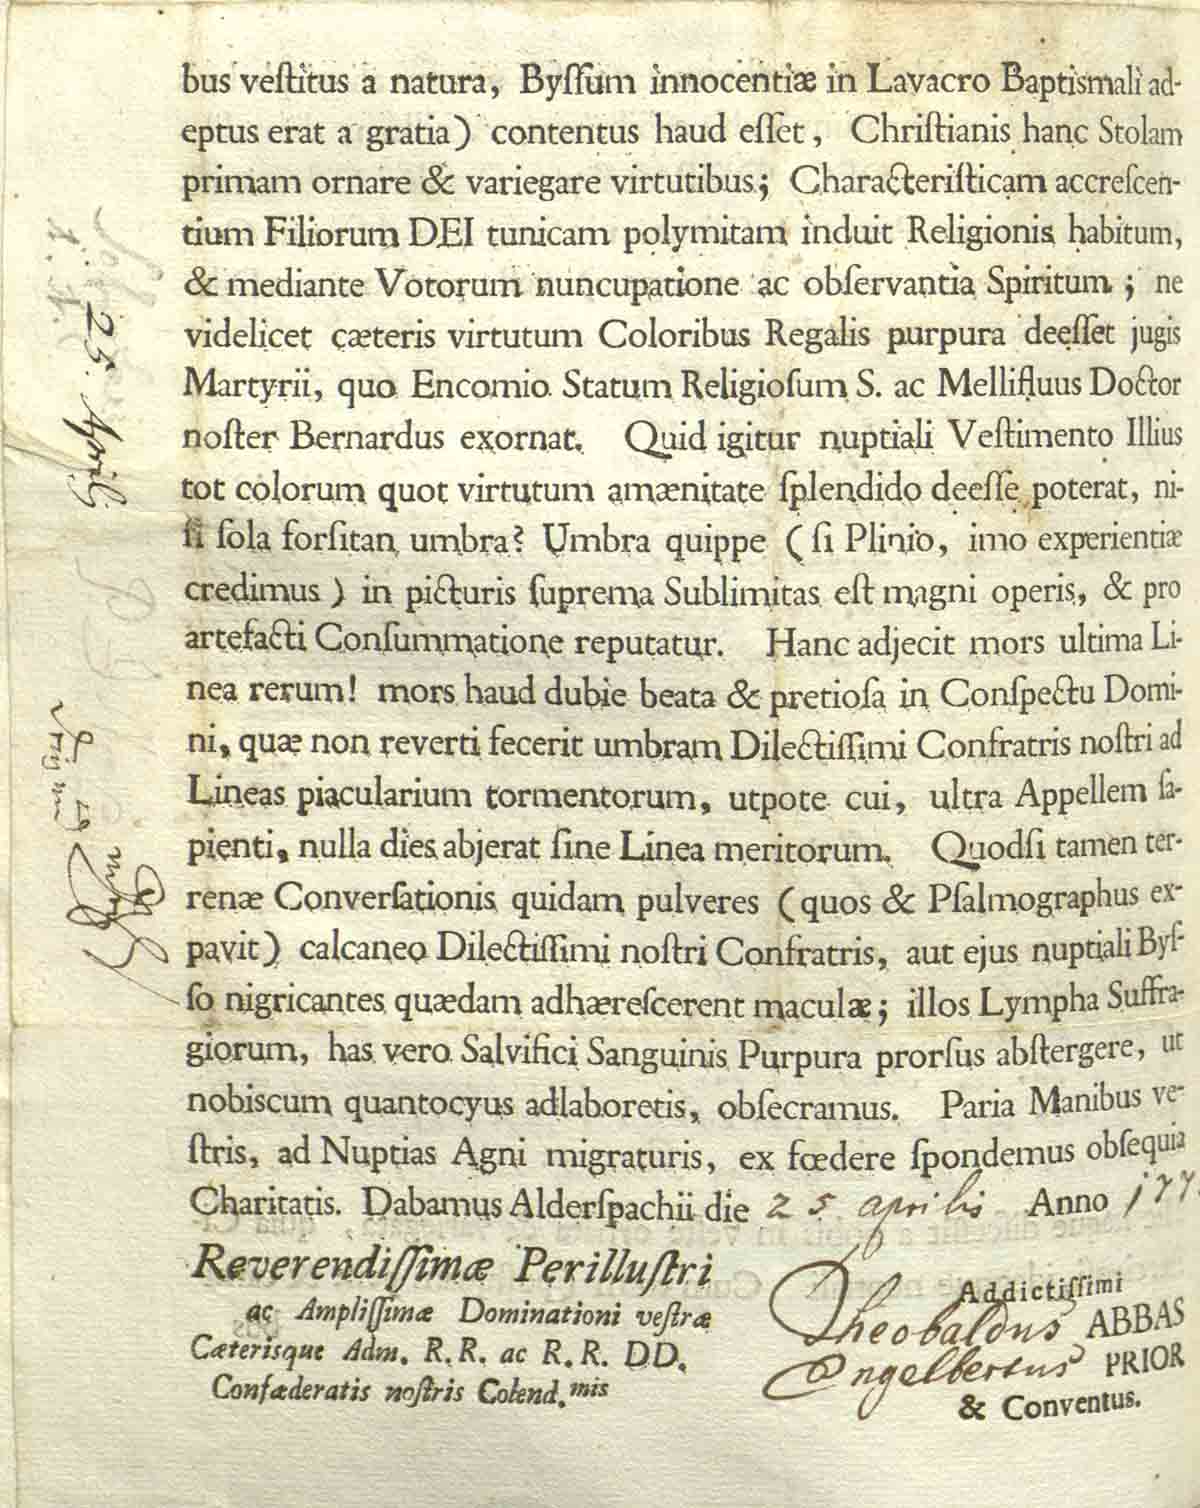 bus veſtitus a natura, Byſſum innocentiæ in Lavacro Baptismali ad-
eptus erat a gratia) contentus haud eſſet, Chriſtianis hanc Stolam
primam ornare & variegare virtutibus; Characteriſticam accreſcen-
tium Filiorum DEI tunicam polymitam induit Religionis habitum,
& mediante Votorum nuncupatione ac obſervantia Spiritum; ne
videlicet cæteris virtutum Coloribus Regalis purpura deeſſet jugis
Martyrii, quo Encomio Statum Religioſum S. ac Mellifluus Doctor
noſter Bernardus exornat. Quid igitur nuptiali Veſtimento Illius
tot colorum quot virtutum amænitate ſplendido deeſſe poterat, ni-
ſi ſola forſitan umbra? Umbra quippe (ſi Plinio, imo experientiæ
credimus) in picturis ſuprema Sublimitas eſt magni operis, & pro
artefacti Conſummatione reputatur. Hanc adjecit mors ultima Li-
nea rerum! mors haud dubie beata & pretioſa in Conſpectu Domi-
ni, quæ non reverti fecerit umbram Dilectiſſimi Confratris noſtri ad
Lineas piacularium tormentorum, utpote cui, ultra Appellem ſa-
pienti, nulla dies abjerat ſine Linea meritorum. Quodſi tamen ter-
renæ Converſationis quidam pulveres (quos & Pſalmographus ex-
pavit) calcaneo Dilectiſſimi noſtri Confratris, aut ejus nuptiali Byſ-
ſo nigricantes quædam adhæreſcerent maculæ; illos Lympha Suffra-
giorum, has vero Salvifici Sanguinis Purpura prorſus abſtergere, ut
nobiscum quantocyus adlaboretis, obſecramus. Paria Manibus ve-
ſtris, ad Nuptias Agni migraturis, ex fœdere ſpondemus obſequia
Charitatis. Dabamus Alderſpachii die 25 aprilis Anno 177
Reverendiſſimæ Perilluſtri
ac Ampliſſimæ Dominationi veſtræ
Cæterisque Adm. R. R. ac R. R. DD.
Confæderatis noſtris Colend.mis
Addictiſſimi
Theobaldus ABBAS
Engelbertus PRIOR
& Conventus.
25. Aprilis